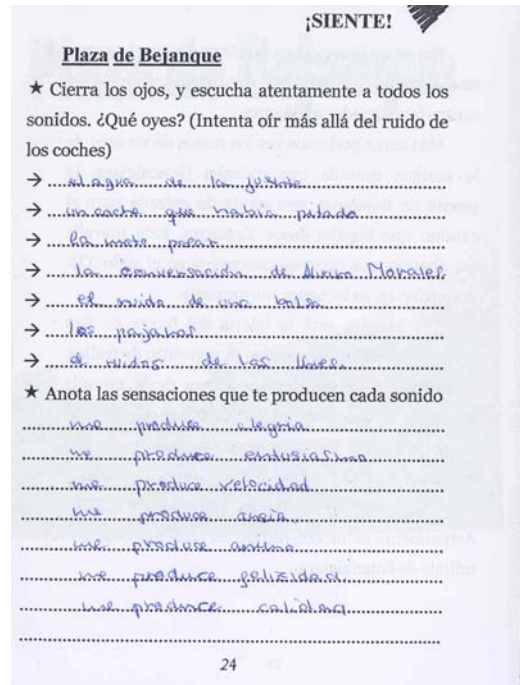 ¡SIENTE!
Plaza de Bejanque
★ Cierra los ojos, y escucha atentamente a todos los
sonidos. ¿Qué oyes? (Intenta oír más allá del ruido de
los coches)
→ el agua de la fuente
→ un coche que había pitado
→ la moto
→ la conversación de Morales
→ el ruido de una bolsa
→ los pajaros
→ ruidos de las llaves.
★ Anota las sensaciones que te producen cada sonido
me produce alegria
me produce entusiasmo
me produce velocidad
me produce
me produce
me produce felizidad
me produce
24